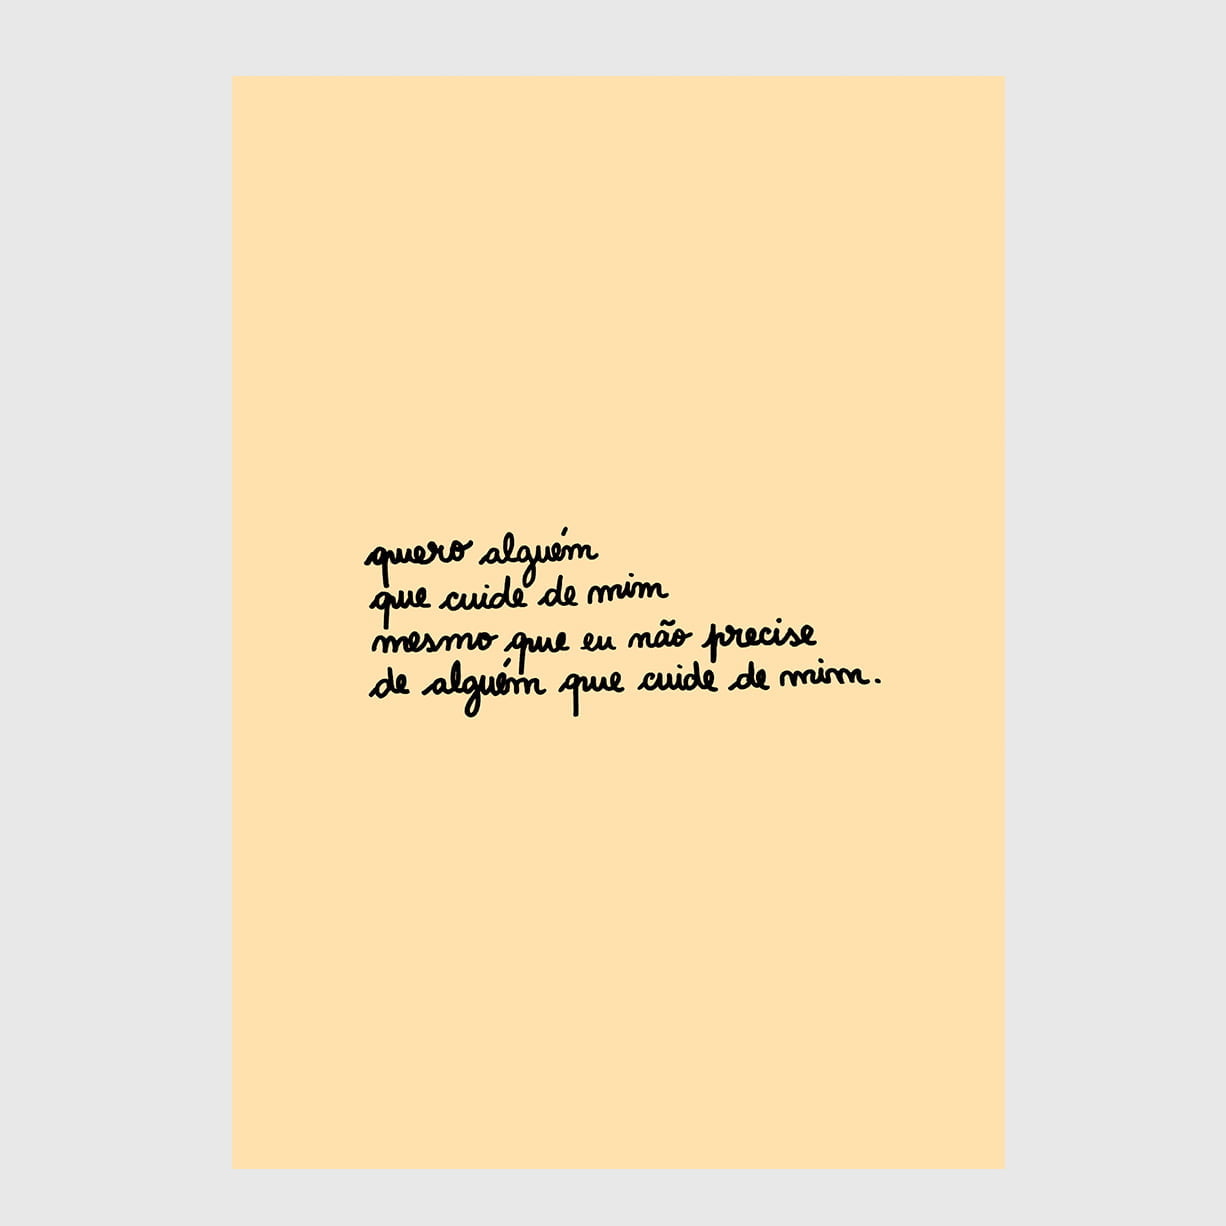 quero alguém
que cuide de mim
mesmo que eu não precise
de alguém que cuide de mim.